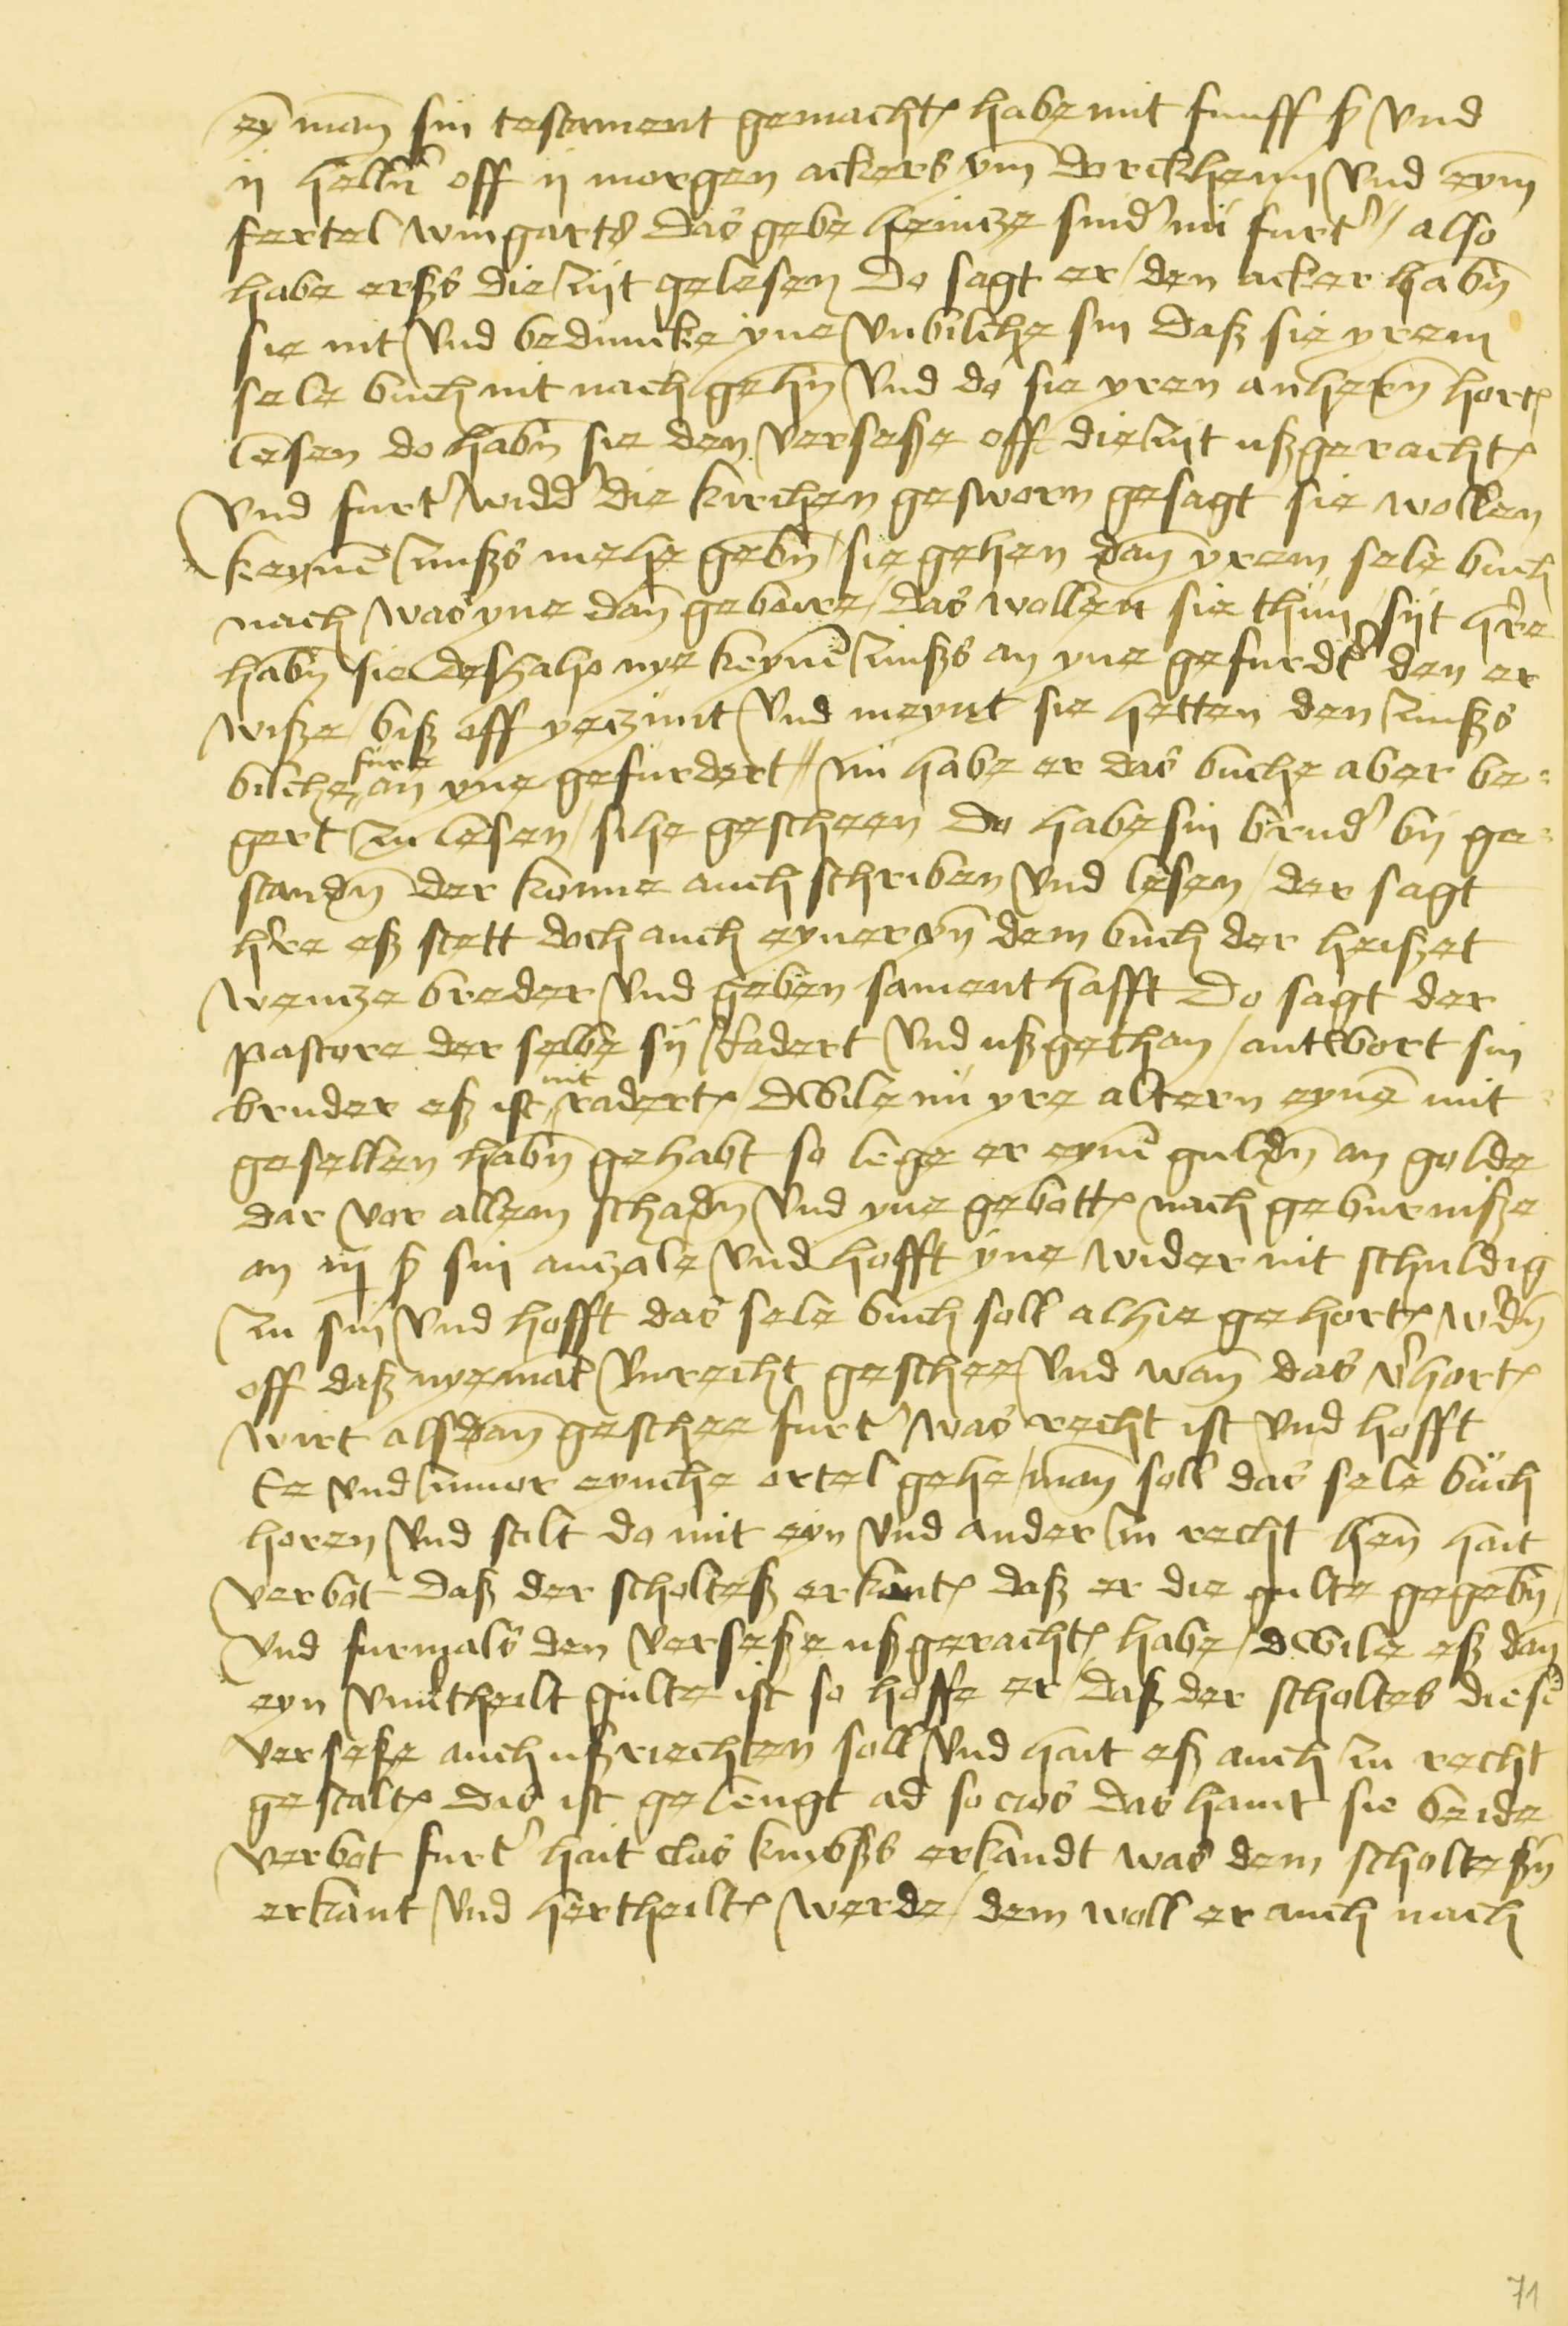 ey man sin testament gemacht habe mit funff ß und
ij hellern off ij morgen ackers ym dorckheim und eym
fertel wingarts das gebe heintze snider nu furter / also
habe erßs die zijt gelesen Do sagt er / den acker haben
sie nit und beduncke yne unbilche sin daß sie yrem
sele buch nit nach gehen und do sie yren anhern hort
lesen do haben sie den verseße off die zijt ußgeracht
und furter widder die kirchen gesworn gesagt sie wollen
keynen zinßs mehe geben / sie gehen dan yrem sele buch
nach was yne dan gebure / das wollen sie thun / sijt here
haben sie deshalp nye keynen zinßs an yne gefurdert den er
wiße / biß off yetzunt und meynt sie hetten den zinßs
bilche fure an yne gefurdert // nu habe er das buche aber be-
gert zu lesen / sihe gescheen Do habe sin bruder bij ge-
standen der konne auch schriben und lesen / der sagt
here eß stett doch auch eyner yn dem buch der heißet
wentze breder und geben sament hafft Do sagt der
pastore der selbe sij radert und ußgethan / antwort sin
bruder eß ist nit radert / dwile nu yre altern eynen mit-
gesellen haben gehabt so lege er eynen gulden an golde
dar vor allem schaden und yne gebott nach geburniße
an iij ß sin anzale und hofft yne wider nit schuldig
zu sin und hofft das sele buch soll alhie gehort werden
off daß nyemants unrecht geschee und wan das verhort
wirt alsdan geschee furter was recht ist und hofft
Ee und zuuor eyniche ortel gehe / man soll das sele buch
horen und stilt do mit eyn und ander zu recht hen hait
verbot daß der scholteß erkant daß er die gulte gegeben /
und furmals den verseße ußgeracht habe / dwile eß dan
eyn unuertheilt gulte ist so hoffe er / daß der scholtes diesen
verseße auch ußriechten soll und hait eß auch zu recht
gestalt das ist gelengt ad socios das haint sie beide
verbot furter hait clas knybßs erkandt was dem scholteßen
erkant und hertheilt werde / dem woll er auch nach
71